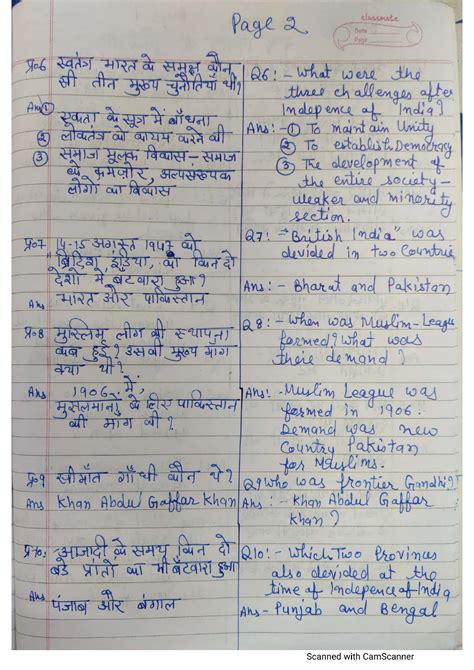 Page 2
classmate
Date
Page
प्र०6 स्वतंत्र भारत के समक्ष कौन
सी तीन मुख्य चुनौतियाँ थीं?
Ans ① एकता के सूत्र में बाँधना
② लोकतंत्र को कायम करने की
③ समाज मूलक विकास - समाज
के कमज़ोर, अल्पसंख्यक
लोगों का विकास
प्र०7 14-15 अगस्त 1947 को
"ब्रिटिश इंडिया, को किन दो
देशों में बटवारा हुआ?
Ans भारत और पाकिस्तान
प्र०8 मुस्लिम लीग की स्थापना
कब हुई? उसकी मुख्य मांग
क्या थी?
Ans 1906 में,
मुसलमानों के लिए पाकिस्तान
की मांग की?
प्र०9 सीमाँत गाँधी कौन थे?
Ans Khan Abdul Gaffar Khan
प्र०10: आजादी के समय किन दो
बडे प्रांतों का भी बँटवारा हुआ
Ans पंजाब और बंगाल
Q6: - What were the
three challenges after
Indepence of India?
Ans: - ① To maintain Unity
② To establish Democracy
③ The development of
the entire society -
weaker and minority
section.
Q7: - "British India" was
devided in two Countries
Ans: - Bharat and Pakistan
Q8: - When was Muslim-League
formed? What was
their demand?
Ans: - Muslim League was
formed in 1906.
Demand was new
Country Pakistan
for Muslims.
Q9 Who was frontier Gandhi?
Ans: - Khan Abdul Gaffar
Khan?
Q10: - Which Two Provinus
also devided at the
time of Independence of India
Ans - Punjab and Bengal
Scanned with CamScanner